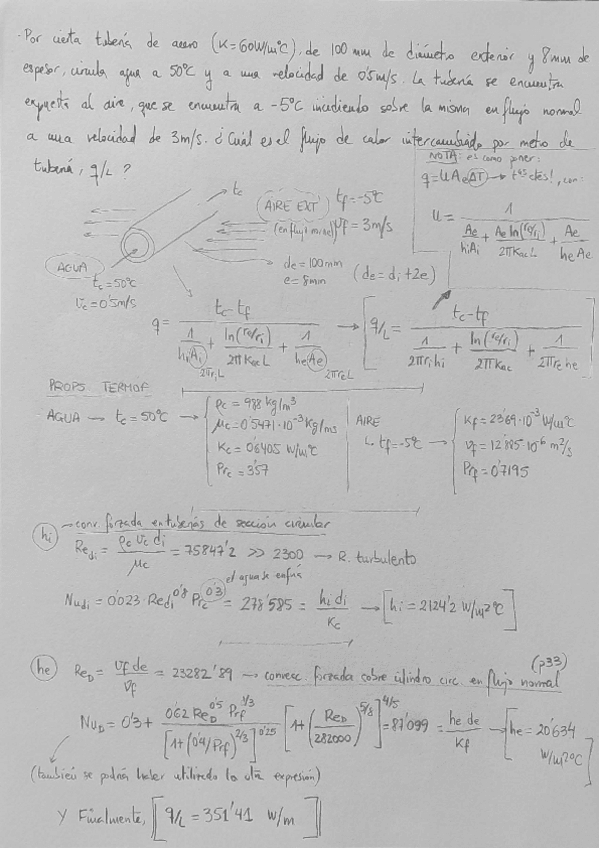 · Por cierta tubería de acero (K=60W/m°C), de 100 mm de diámetro exterior y 8mm de
espesor, circula agua a 50°C y a una velocidad de 0'5m/s. La tubería se encuentra
expuesta al aire, que se encuentra a -5°C incidiendo sobre la misma en flujo normal
a una velocidad de 3m/s. ¿Cuál es el flujo de calor intercambiado por metro de
tubería, q/L ?
NOTA: es como poner:
q=UAeΔT → tas ctes!, con:
U = 1 / (Ae/(hiAi) + Ae ln(re/ri)/(2πKacL) + Ae/(heAe))
tc
AIRE EXT
tf=-5°C
(en flujo normal) vf = 3m/s
AGUA
tc=50°C
vc=0'5m/s
de=100mm
e=8mm
(de = di+2e)
q = (tc-tf) / (1/(hiAi) + ln(re/ri)/(2πKacL) + 1/(heAe)) → [q/L = (tc-tf) / (1/(2πrihi) + ln(re/ri)/(2πKac) + 1/(2πrehe))]
2πriL
2πreL
PROPS TERMOF
AGUA → tc=50°C → { ρc = 988 kg/m³
μc=0'5471·10⁻³ kg/ms
Kc=0'6405 W/m°C
Prc=3'57
AIRE
tf=-5°C → { Kf=23'69·10⁻³ W/m°C
νf=12'885·10⁻⁶ m²/s
Prf=0'7195
hi → conv. forzada en tuberías de sección circular
Redi = ρc vc di / μc = 75847'2 >> 2300 → R. turbulento
el agua se enfría
Nudi = 0'023·Redi^0'8 Prc^0'3 = 278'585 = hi di / Kc → [hi = 2124'2 W/m²°C]
he ReD = vf de / νf = 23282'89 → convecc. forzada sobre cilindro circ. en flujo normal
(p33)
NuD = 0'3 + 0'62 ReD^0'5 Prf^1/3 / [1+(0'4/Prf)^2/3]^0'25 [1+(ReD/282000)^5/8]^4/5 = 87'099 = he de / Kf → [he = 20'634 W/m²°C]
(también se podría haber utilizado la otra expresión)
Y Finalmente, [q/L = 351'41 W/m]